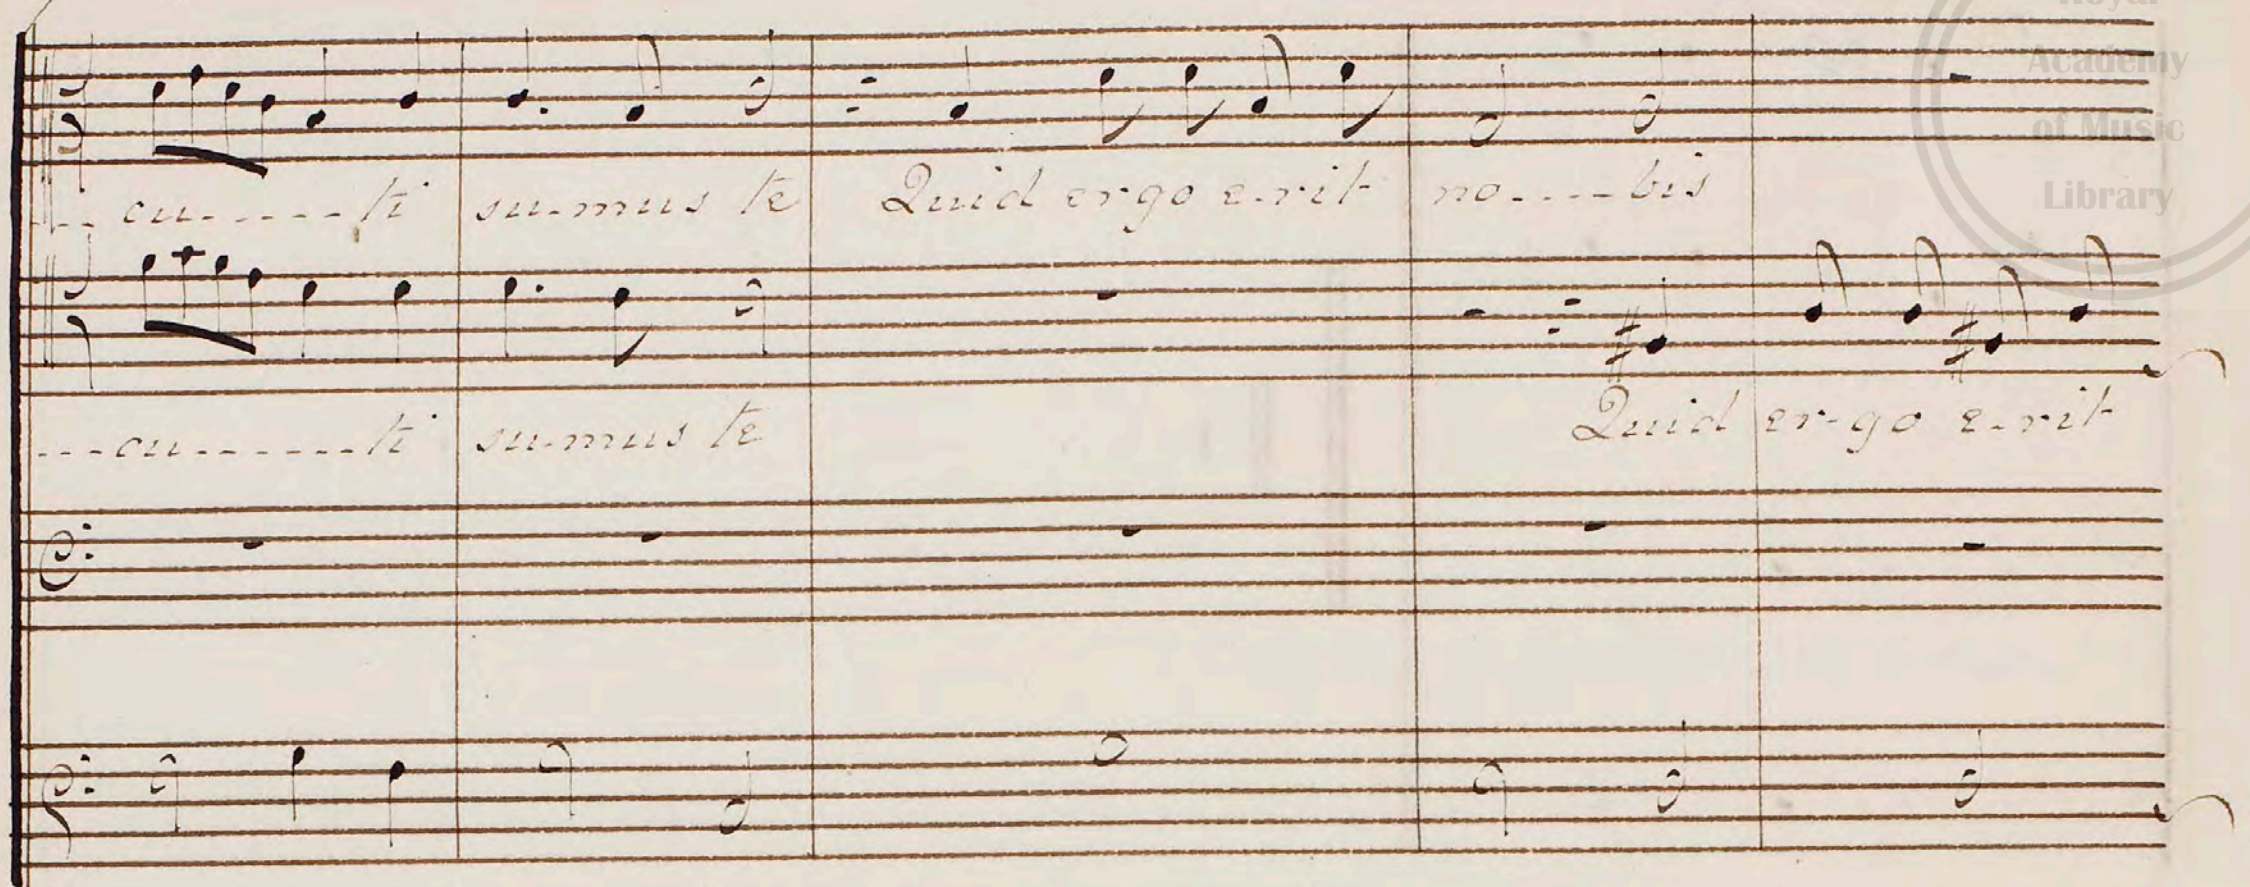 Royal
Academy
of Music
Library
-- cu-----ti su-mus te Quid er-go e-rit no----bis
---cu-------ti su-mus te Quid er-go e-rit